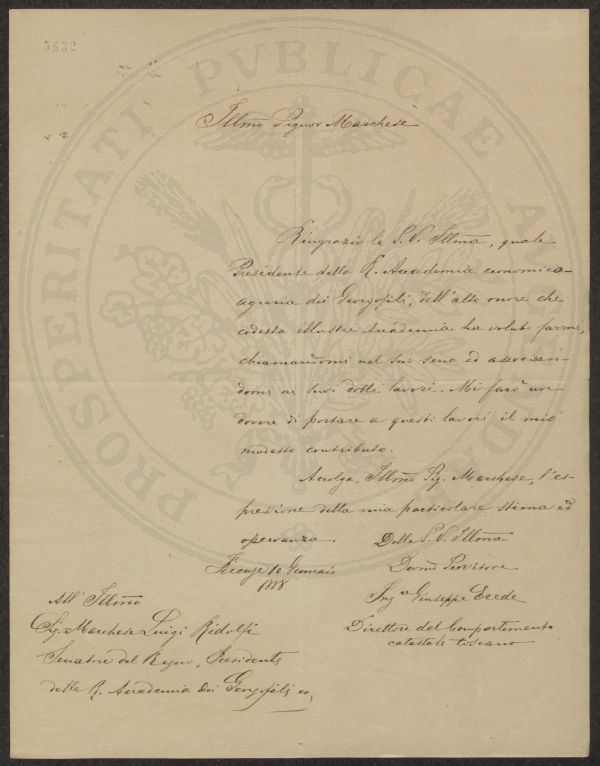 5632
PROSPERITATI PVBLICAE AVGENDAE
Illmo Signor Marchese
Ringrazio la S. V. Illma, quale
Presidente della R. Accademia economico-
agraria dei Georgofili, dell'alto onore che
codesta illustre Accademia ha voluto farmi,
chiamandomi nel suo seno ed associan-
domi ai suoi dotti lavori. Mi farò un
dovere di portare a questi lavori il mio
modesto contributo.
Accolga, Illmo Sig. Marchese, l'es-
pressione della mia particolare stima ed
osservanza.
Della S. V. Illma
Firenze 10 Gennaio
1888
Devmo Servitore
Ingre Giuseppe Erede
Direttore del Compartimento
catastale toscano
All' Illmo
Sig. Marchese Luigi Ridolfi
Senatore del Regno, Presidente
della R. Accademia dei Georgofili ec,